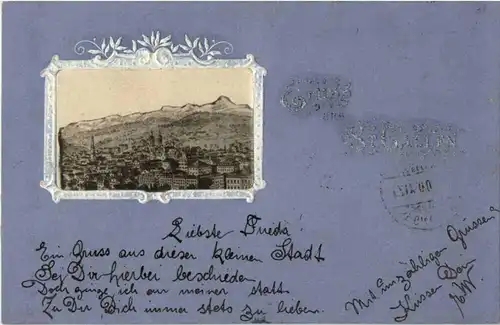 Gruss
aus
St. Gallen
Liebste Frieda!
Ein Gruss aus dieser kleinen Stadt
Sei Dir hierbei beschieden
Doch ginge ich an meiner statt
Zu Dir, Dich immer stets zu lieben.
Mit unzähligen Grüssen &
Küssen Dein